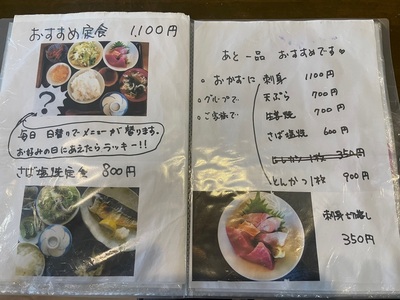 おすすめ定食 1,100円
?
毎日 日替りでメニューが替ります。
お好みの日にあえたらラッキー!!
さば塩焼定食 800円
あと一品 おすすめです。
○おかずに 刺身 1100円
○グループで 天ぷら 700円
○ご家族で 生姜焼 700円
さば塩焼 600円
とんかつ1枚 350円
とんかつ1枚 900円
刺身切落し
350円